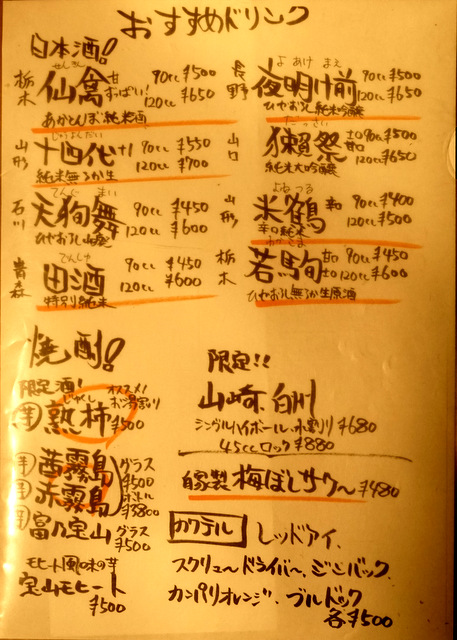 おすすめドリンク
日本酒!!
栃木 仙禽 せんきん 甘すっぱい! 90cc ¥500
120cc ¥650
あかとんぼ 純米酒
山形 十四代 じゅうよんだい 90cc ¥550
120cc ¥700
純米無ろか生
石川 天狗舞 てんぐまい 90cc ¥450
120cc ¥600
ひやおろし
青森 田酒 でんしゅ 90cc ¥450
120cc ¥600
特別純米
長野 夜明け前 よあけまえ 90cc ¥500
120cc ¥650
ひやおろし 純米吟醸
山口 獺祭 だっさい 90cc ¥500
120cc ¥650
純米大吟醸
山形 米鶴 よねつる 辛口 90cc ¥400
120cc ¥500
辛口純米
栃木 若駒 わかこま 甘口 90cc ¥450
120cc ¥600
ひやおろし 無ろか生原酒
焼酎!!
限定酒! オススメ!
芋 熟柿 じゅくし お湯割り ¥500
芋 茜霧島 グラス ¥500
芋 赤霧島 ボトル ¥3800
芋 富乃宝山 グラス ¥500
モヒート風の味の芋
宝山モヒート
¥500
限定!!
山崎、白州
シングルハイボール、水割り ¥680
45cc ロック ¥880
自家製 梅ぼしサワー ¥480
カクテル レッドアイ、
スクリュードライバー、ジンバック、
カンパリオレンジ、ブルドック
各¥500